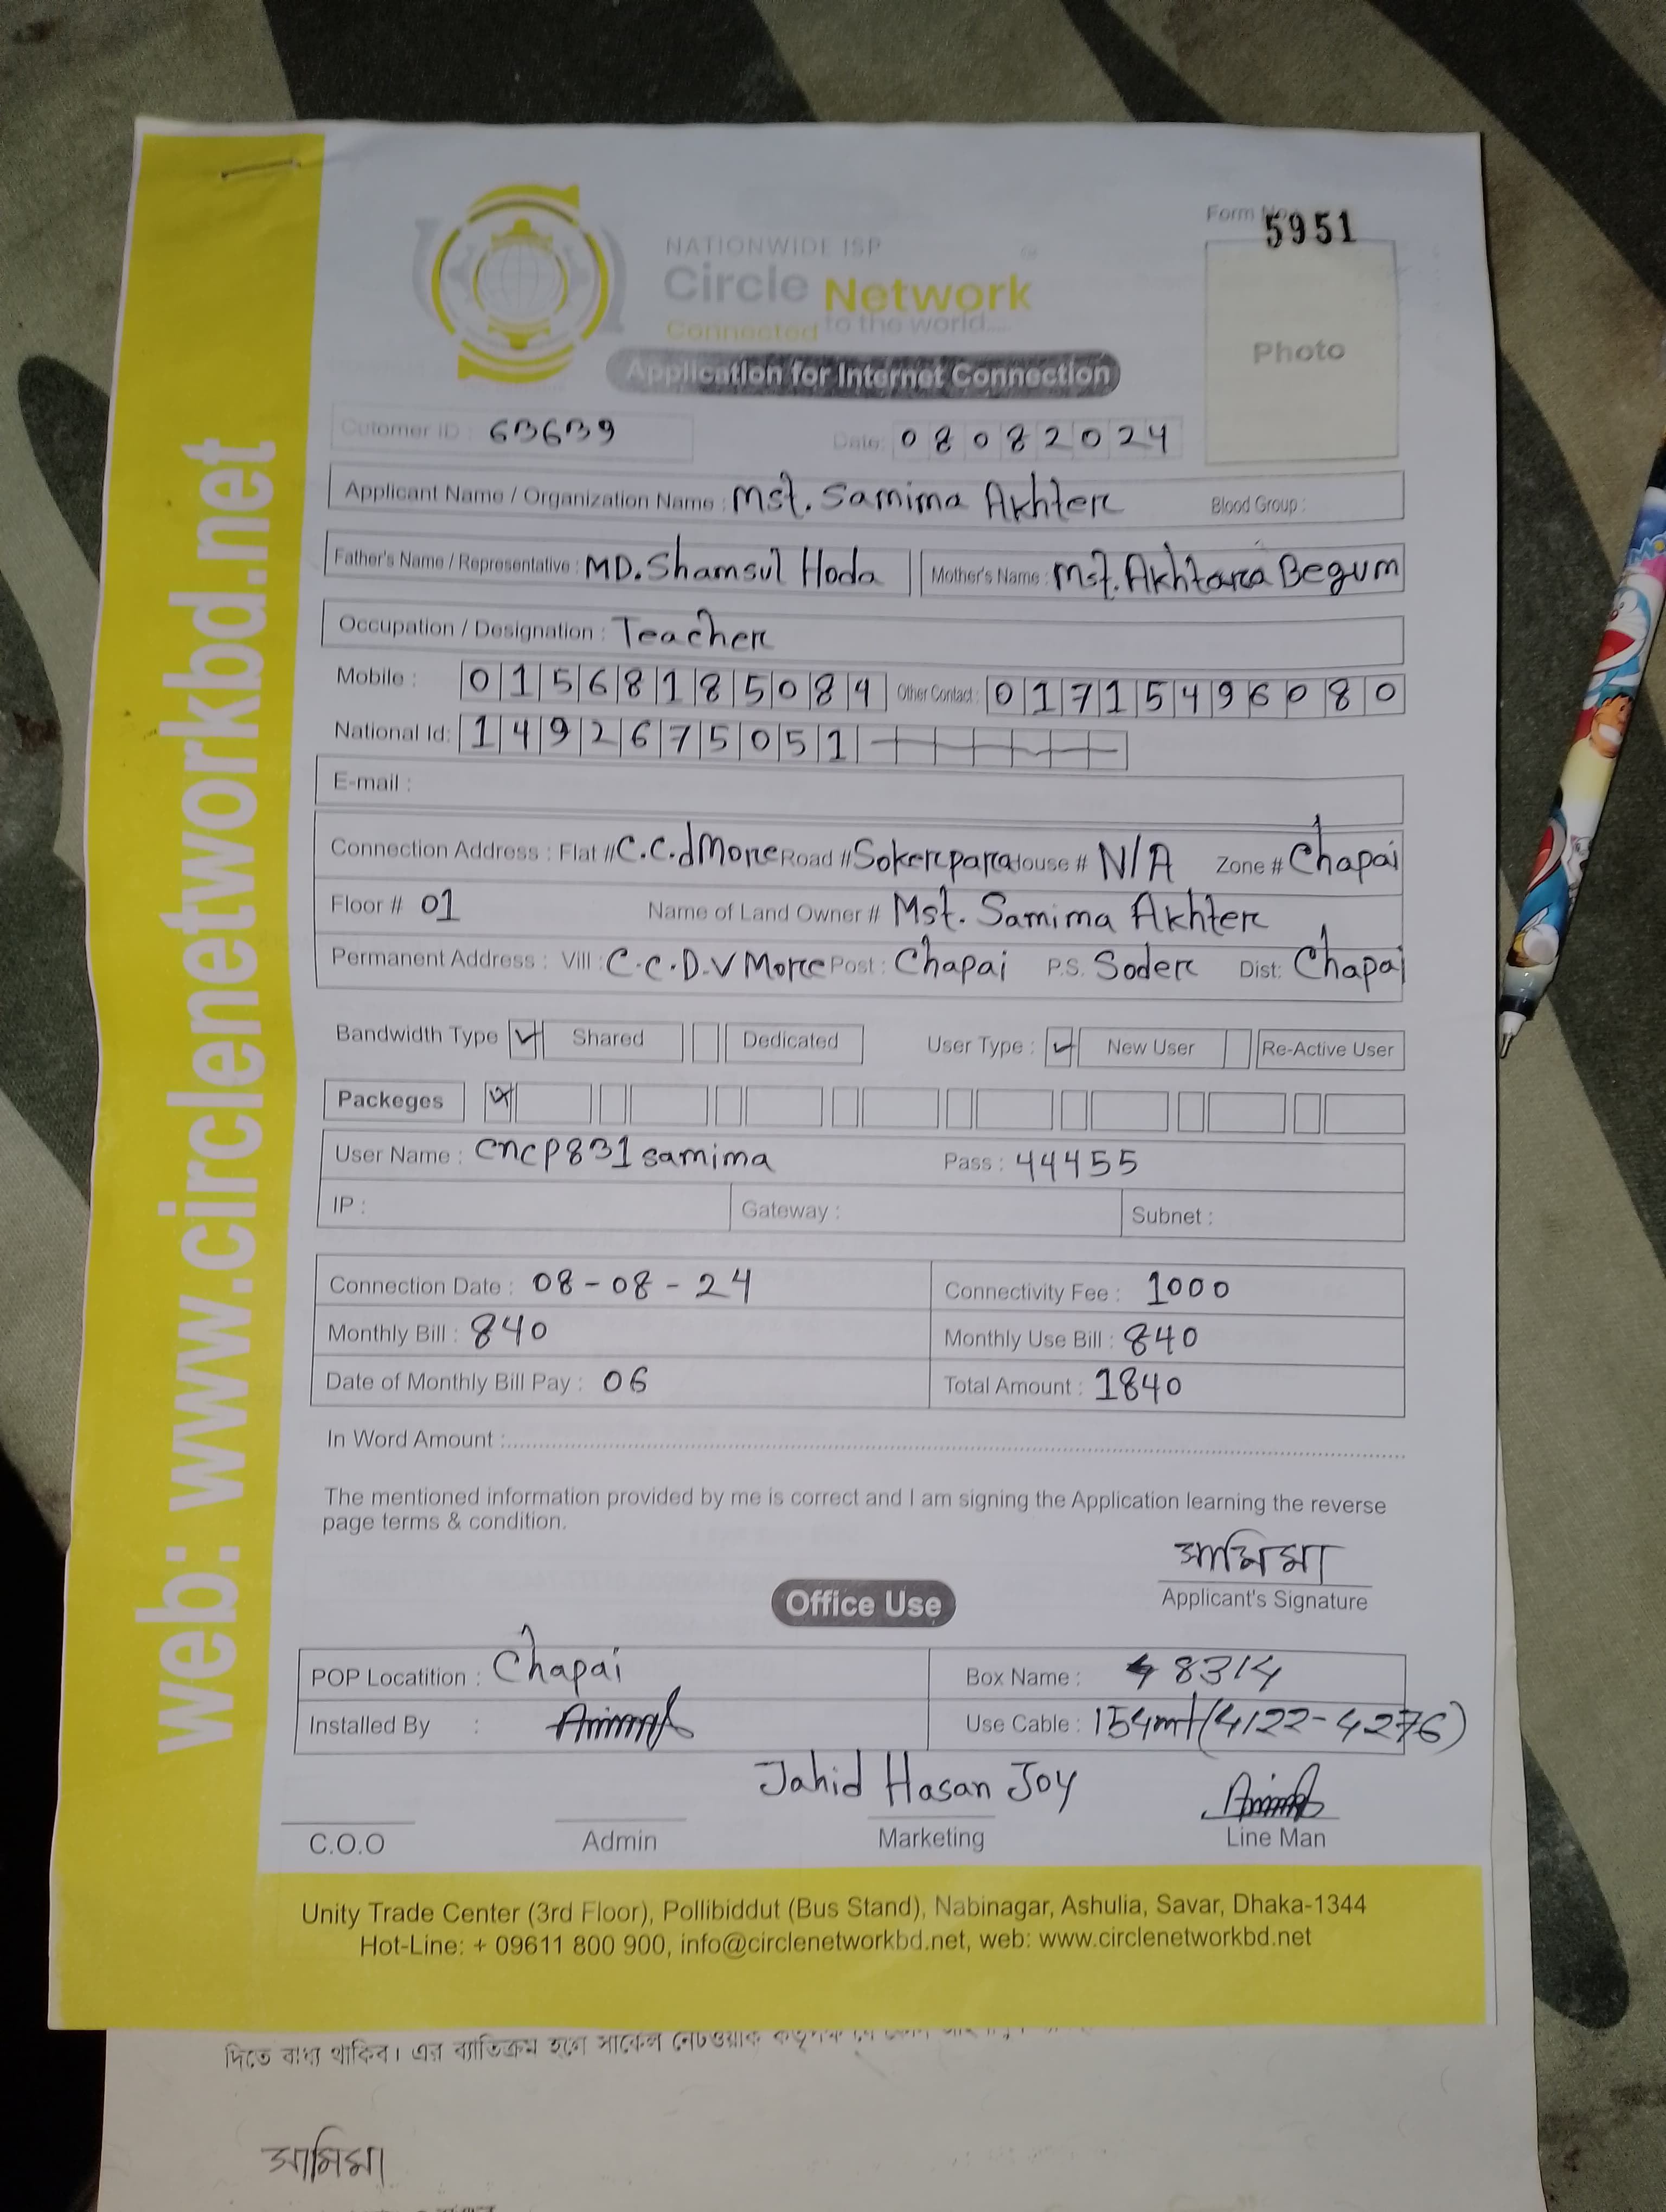 Form No. 5951
NATIONWIDE ISP
Circle Network
Connected to the world....
Photo
Application for Internet Connection
Cutomer ID : 63639
Date: 08082024
Applicant Name / Organization Name : Mst. Samima Akhter Blood Group :
Father's Name / Representative : MD. Shamsul Hoda Mother's Name : Mst. Akhtara Begum
Occupation / Designation : Teacher
Mobile : 01568185084 Other Contact : 01715496080
National Id: 1492675051
E-mail :
Connection Address : Flat # C.C.d More Road # Sokerpara House # N/A Zone # Chapai
Floor # 01 Name of Land Owner # Mst. Samima Akhter
Permanent Address : Vill : C.C.D.V More Post : Chapai P.S. Soder Dist: Chapai
Bandwidth Type Shared Dedicated User Type : New User Re-Active User
Packeges
User Name : cncp831samima Pass : 44455
IP : Gateway : Subnet :
Connection Date : 08-08-24 Connectivity Fee : 1000
Monthly Bill : 840 Monthly Use Bill : 840
Date of Monthly Bill Pay : 06 Total Amount : 1840
In Word Amount :
The mentioned information provided by me is correct and I am signing the Application learning the reverse
page terms & condition.
সামিমা
Applicant's Signature
Office Use
POP Locatition : Chapai Box Name : 8314
Installed By : Use Cable : 154mt(4122-4276)
Jahid Hasan Joy
C.O.O Admin Marketing Line Man
Unity Trade Center (3rd Floor), Pollibiddut (Bus Stand), Nabinagar, Ashulia, Savar, Dhaka-1344
Hot-Line: + 09611 800 900, info@circlenetworkbd.net, web: www.circlenetworkbd.net
web: www.circlenetworkbd.net
দিতে বাধ্য থাকিব। এর ব্যতিক্রম হলে সার্কেল নেটওয়ার্ক
সামিমা